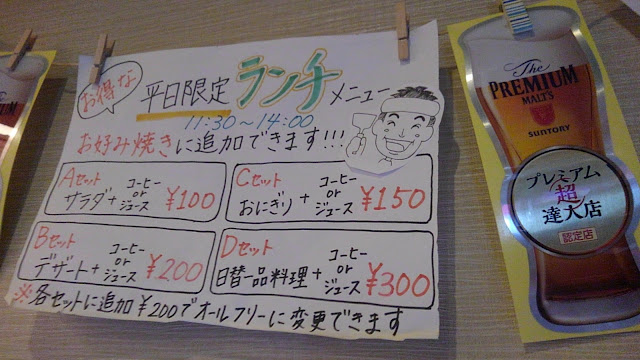 お得な
平日限定 ランチ メニュー
11:30～14:00
お好み焼きに追加できます!!!
Aセット
サラダ+コーヒー or ジュース ¥100
Cセット
おにぎり+コーヒー or ジュース ¥150
Bセット
デザート+コーヒー or ジュース ¥200
Dセット
日替一品料理+コーヒー or ジュース ¥300
※各セットに追加¥200でオールフリーに変更できます
The
PREMIUM
MALT'S
SUNTORY
プレミアム
超
達人店
認定店